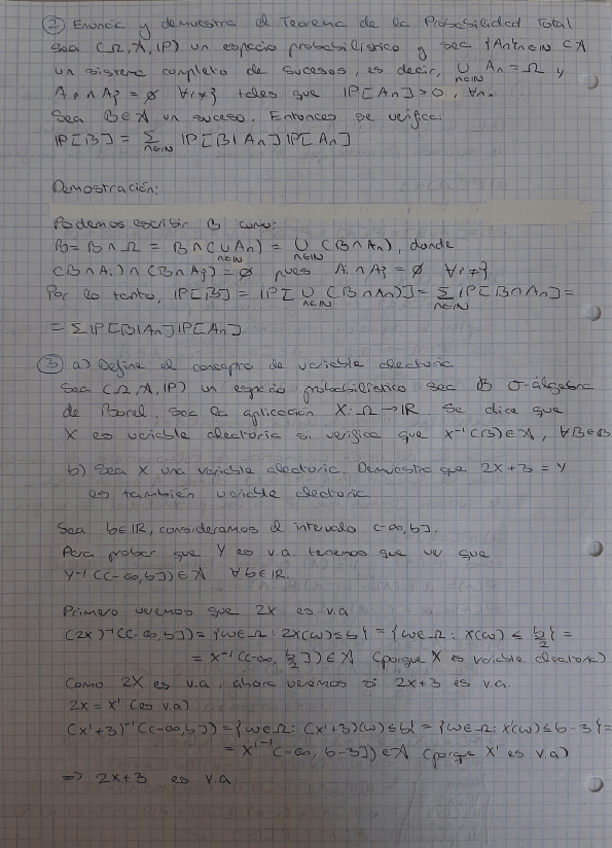 ② Enuncia y demuestra el Teorema de la Probabilidad Total
Sea (Ω, A, IP) un espacio probabilístico y sea {An}n∈IN ⊂ A
un sistema completo de sucesos, es decir, ∪n∈IN An = Ω y
Ai ∩ Aj = ∅ ∀i≠j tales que IP[An] > 0, ∀n.
Sea B∈A un suceso. Entonces se verifica:
IP[B] = Σn∈IN IP[B|An] IP[An]
Demostración:
Podemos escribir B como:
B = B ∩ Ω = B ∩ (∪n∈IN An) = ∪n∈IN (B ∩ An), donde
(B ∩ Ai) ∩ (B ∩ Aj) = ∅ pues Ai ∩ Aj = ∅ ∀i≠j
Por lo tanto, IP[B] = IP[∪n∈IN (B∩An)] = Σn∈IN IP[B∩An] =
= Σ IP[B|An] IP[An]
③ a) Define el concepto de variable aleatoria
Sea (Ω, A, IP) un espacio probabilístico sea B σ-álgebra
de Borel. Sea la aplicación X: Ω → IR. Se dice que
X es variable aleatoria si verifica que X⁻¹(B) ∈ A, ∀B∈B
b) Sea X una variable aleatoria. Demuestra que 2X+3 = Y
es también variable aleatoria
Sea b∈IR, consideramos el intervalo (-∞, b].
Para probar que Y es v.a. tenemos que ver que
Y⁻¹((-∞, b]) ∈ A ∀b∈IR.
Primero veremos que 2X es v.a
(2X)⁻¹((-∞, b]) = {ω∈Ω : 2X(ω) ≤ b} = {ω∈Ω : X(ω) ≤ b/2} =
= X⁻¹((-∞, b/2]) ∈ A (porque X es variable aleatoria)
Como 2X es v.a, ahora veremos si 2X+3 es v.a.
2X = X' (es va)
(X'+3)⁻¹((-∞, b]) = {ω∈Ω : (X'+3)(ω) ≤ b} = {ω∈Ω : X'(ω) ≤ b-3} =
= X'⁻¹(-∞, b-3]) ∈ A (porque X' es v.a)
⇒ 2X+3 es v.a